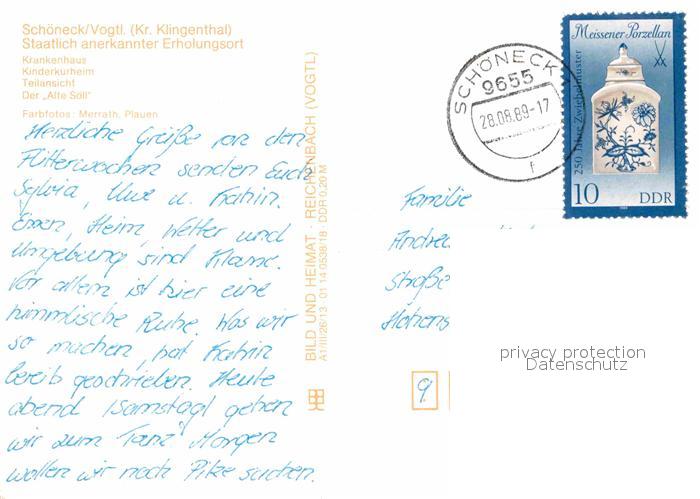 Schöneck/Vogtl. (Kr. Klingenthal)
Staatlich anerkannter Erholungsort
Krankenhaus
Kinderkurheim
Teilansicht
Der „Alte Söll"
Farbfotos: Merrath, Plauen
Herzliche Grüße von den
Flitterwochen senden Euch
Sylvia, Uwe u. Katrin.
Essen, Heim, Wetter und
Umgebung sind Klasse.
Vor allem ist hier eine
himmlische Ruhe. Was wir
so machen, hat Katrin
bereits geschrieben. Heute
abend (Samstag) gehen
wir zum Tanz. Morgen
wollen wir noch Pilze suchen.
BILD UND HEIMAT · REICHENBACH (VOGTL)
A1/III/26/13 01 14 0538/18 · DDR 0,20 M
SCHÖNECK
9655
28.08.89-17
Meissener Porzellan
250 Jahre Zwiebelmuster
10 DDR
Familie
Andrea
Straße
Hohens
9.
privacy protection
Datenschutz